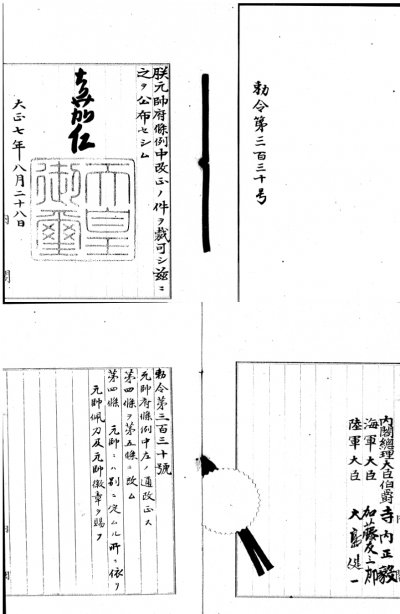 勅令第三百三十号
朕元帥府條例中改正ノ件ヲ裁可シ茲ニ
之ヲ公布セシム
嘉仁
天皇御璽
大正七年八月二十八日
内閣
内閣總理大臣伯爵寺内正毅
海軍大臣 加藤友三郎
陸軍大臣 大島健一
勅令第三百三十號
元帥府條例中左ノ通改正ス
第四條ヲ第五條ニ改ム
第四條 元帥ニハ別ニ定ムル所ニ依リ
元帥佩刀及元帥徽章ヲ賜フ
内閣